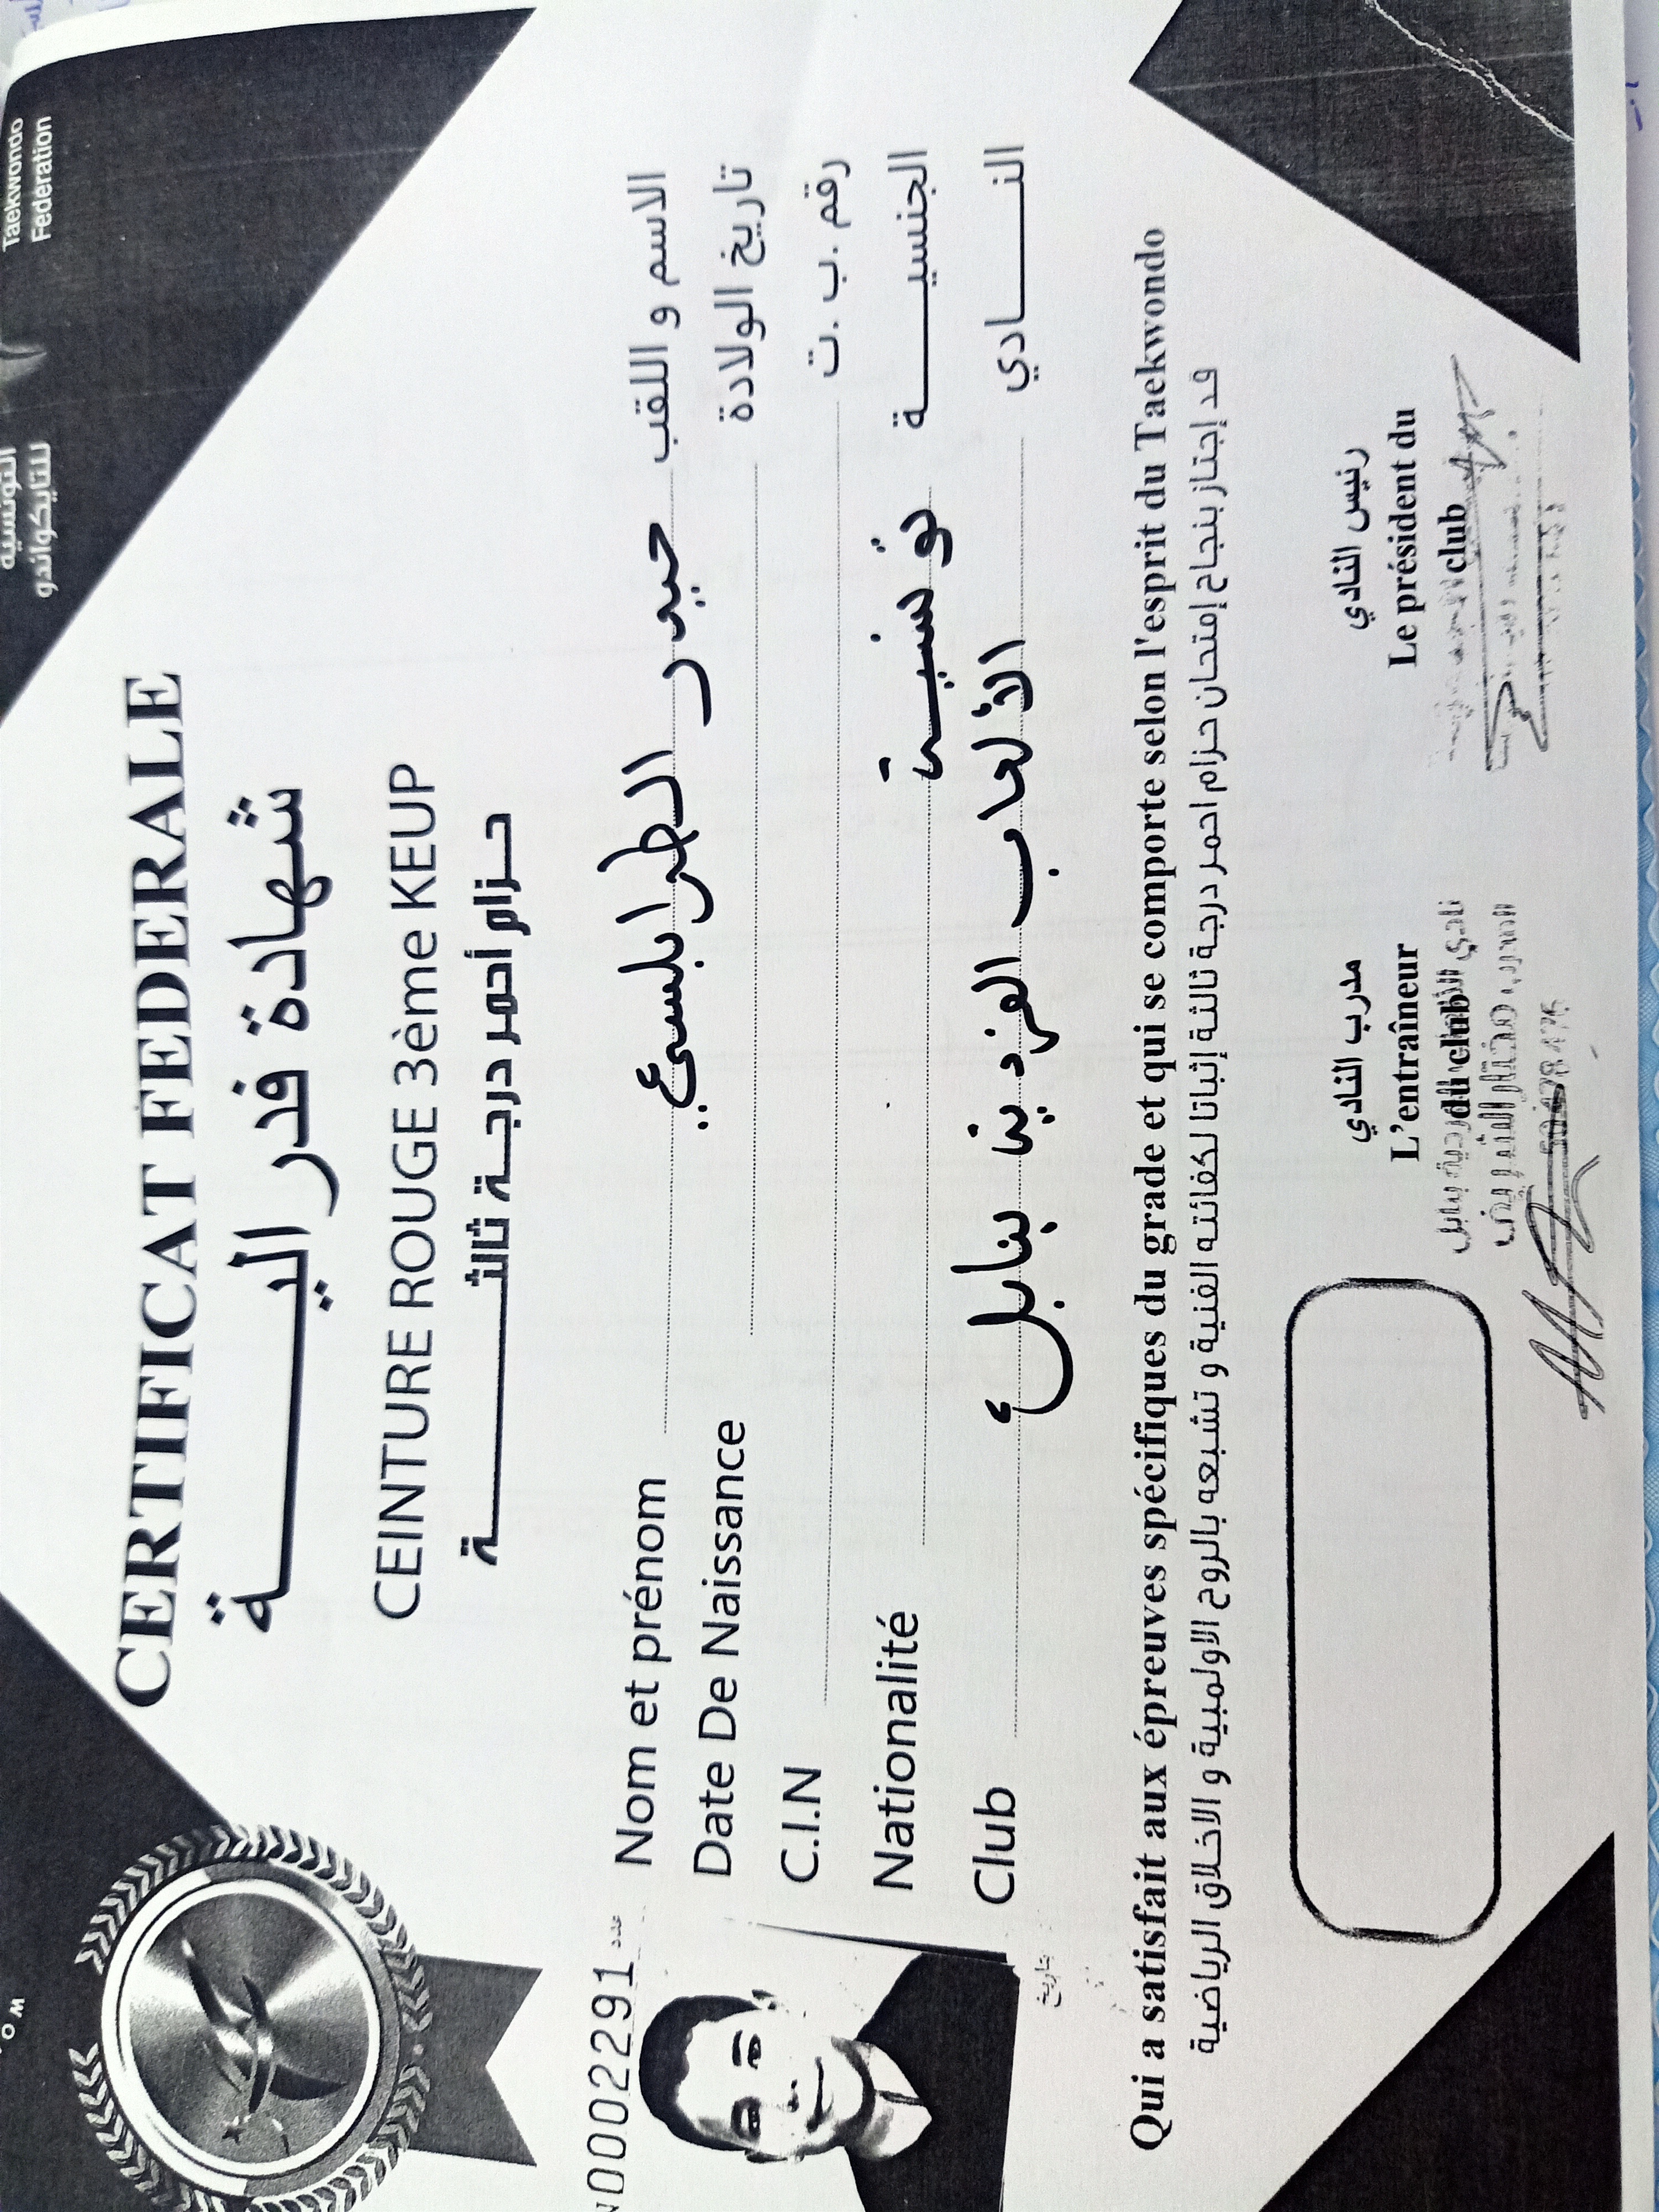 Taekwondo
Federation
التونسية
للتايكواندو
CERTIFICAT FEDERALE
شهادة فدرالية
CEINTURE ROUGE 3ème KEUP
حزام أحمر درجة ثالثة
N0002291 عدد
Nom et prénom حيدر الطرابلسي الاسم و اللقب
Date De Naissance تاريخ الولادة
C.I.N رقم .ب .ت
Nationalité تونسية الجنسية
Club الألعاب الفردية بنابل النادي
تاريخ
Qui a satisfait aux épreuves spécifiques du grade et qui se comporte selon l'esprit du Taekwondo
قد إجتاز بنجاح إمتحان حزام احمر درجة ثالثة إثباتا لكفائته الفنية و تشبعه بالروح الاولمبية و الاخلاق الرياضية
مدرب النادي
L'entraîneur
du club
نادي الفردية بنابل
المدرب مختار
رئيس النادي
Le président du
club